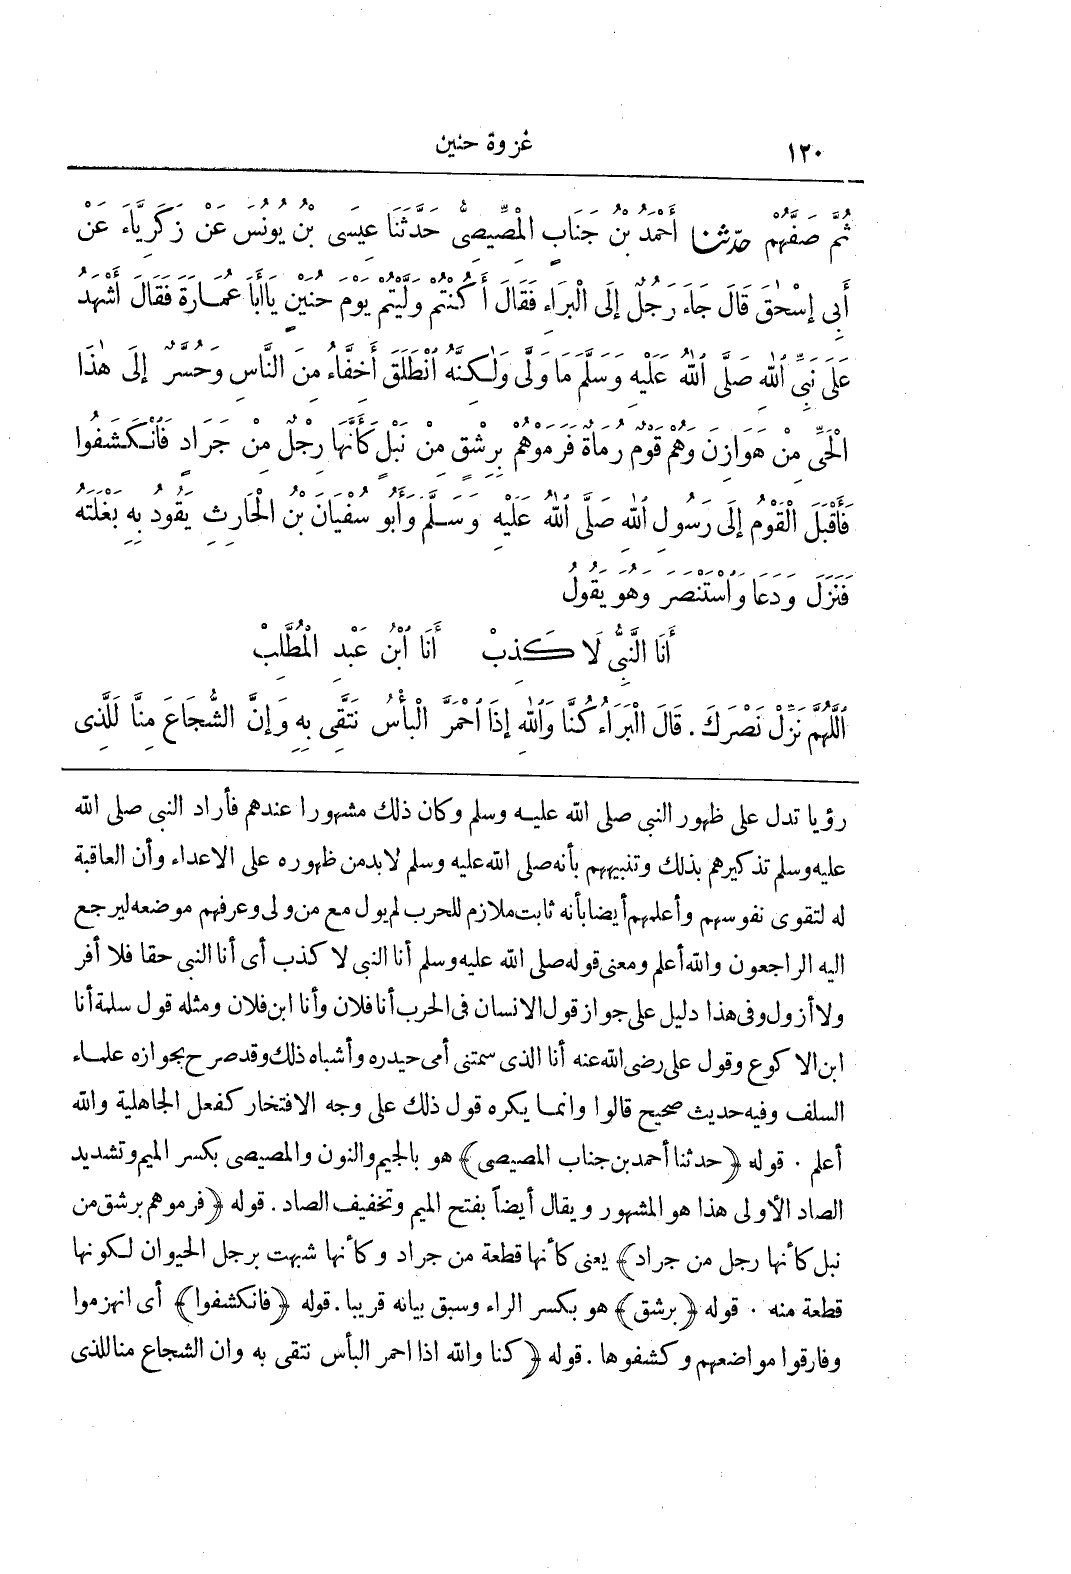 ١٢٠ غزوة حنين
ثُمَّ صَفَّهُمْ حدّثنا أَحْمَدُ بْنُ جَنَابٍ الْمِصِّيصِىُّ حَدَّثَنَا عِيسَى بْنُ يُونُسَ عَنْ زَكَرِيَّاءَ عَنْ
أَبِى إِسْحٰقَ قَالَ جَاءَ رَجُلٌ إِلَى الْبَرَاءِ فَقَالَ أَكُنْتُمْ وَلَّيْتُمْ يَوْمَ حُنَيْنٍ يَاأَبَا عُمَارَةَ فَقَالَ أَشْهَدُ
عَلَى نَبِىِّ ٱللهِ صَلَّى ٱللهُ عَلَيْهِ وَسَلَّمَ مَا وَلَّى وَلٰكِنَّهُ ٱنْطَلَقَ أَخِفَّاءُ مِنَ النَّاسِ وَحُسَّرٌ إِلَى هٰذَا
الْحَىِّ مِنْ هَوَازِنَ وَهُمْ قَوْمٌ رُمَاةٌ فَرَمَوْهُمْ بِرِشْقٍ مِنْ نَبْلٍ كَأَنَّهَا رِجْلٌ مِنْ جَرَادٍ فَٱنْكَشَفُوا
فَأَقْبَلَ الْقَوْمُ إِلَى رَسُولِ ٱللهِ صَلَّى ٱللهُ عَلَيْهِ وَسَلَّمَ وَأَبُو سُفْيَانَ بْنُ الْحَارِثِ يَقُودُ بِهِ بَغْلَتَهُ
فَنَزَلَ وَدَعَا وَٱسْتَنْصَرَ وَهُوَ يَقُولُ
أَنَا النَّبِىُّ لَا كَذِبْ أَنَا ٱبْنُ عَبْدِ الْمُطَّلِبْ
ٱللّٰهُمَّ نَزِّلْ نَصْرَكَ . قَالَ الْبَرَاءُ كُنَّا وَٱللهِ إِذَا ٱحْمَرَّ الْبَأْسُ نَتَّقِى بِهِ وَإِنَّ الشُّجَاعَ مِنَّا لَلَّذِى
رؤيا تدل على ظهور النبى صلى الله عليه وسلم وكان ذلك مشهورا عندهم فأراد النبى صلى الله
عليه وسلم تذكيرهم بذلك وتنبيههم بأنه صلى الله عليه وسلم لابد من ظهوره على الاعداء وأن العاقبة
له لتقوى نفوسهم وأعلمهم أيضا بأنه ثابت ملازم للحرب لم يول مع من ولى وعرفهم موضعه ليرجع
اليه الراجعون والله أعلم ومعنى قوله صلى الله عليه وسلم أنا النبى لا كذب أى أنا النبى حقا فلا أفر
ولا أزول وفى هذا دليل على جواز قول الانسان فى الحرب أنا فلان وأنا ابن فلان ومثله قول سلمة أنا
ابن الاكوع وقول على رضى الله عنه أنا الذى سمتنى أمى حيدره وأشباه ذلك وقد صرح بجوازه علماء
السلف وفيه حديث صحيح قالوا وانما يكره قول ذلك على وجه الافتخار كفعل الجاهلية والله
أعلم . قوله ﴿حدثنا أحمد بن جناب المصيصى﴾ هو بالجيم والنون والمصيصى بكسر الميم وتشديد
الصاد الأولى هذا هو المشهور ويقال أيضاً بفتح الميم وتخفيف الصاد . قوله ﴿فرموهم برشق من
نبل كأنها رجل من جراد﴾ يعنى كأنها قطعة من جراد وكأنها شبهت برجل الحيوان لكونها
قطعة منه . قوله ﴿برشق﴾ هو بكسر الراء وسبق بيانه قريبا . قوله ﴿فانكشفوا﴾ أى انهزموا
وفارقوا مواضعهم وكشفوها . قوله ﴿كنا والله اذا احمر البأس نتقى به وان الشجاع منا للذى